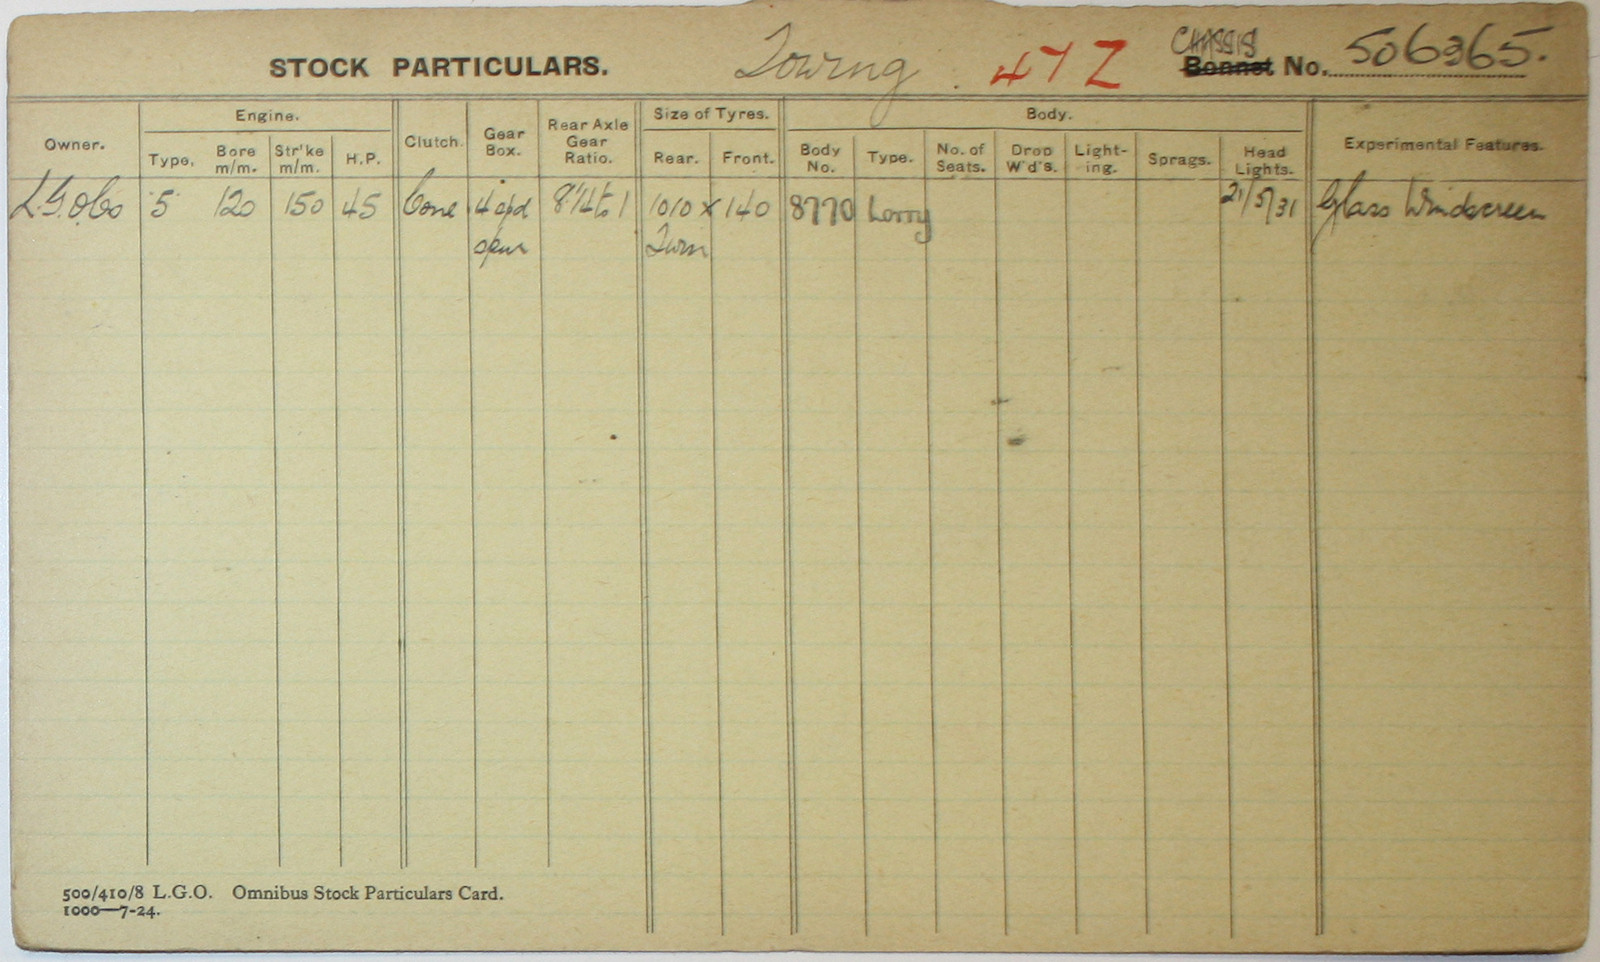 STOCK PARTICULARS. Towing 47Z CHASSIS Bonnet No. 506365.
Owner. Engine. Clutch. Gear Box. Rear Axle Gear Ratio. Size of Tyres. Body. Experimental Features.
Type, Bore m/m. Str'ke m/m. H.P. Rear. Front. Body No. Type. No. of Seats. Drop W'd's. Light-ing. Sprags. Head Lights.
L.G.O.Co 5 120 150 45 Cone 4 spd 8¼ to 1 1010 x 140 8770 Lorry 21/5/31 Glass Windscreen
spur Twin
500/410/8 L.G.O. Omnibus Stock Particulars Card.
1000—7-24.